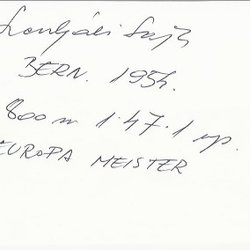 Szentgáli Lajos
BERN. 1954.
800 m 1.47.1 mp.
EUROPA MEISTER